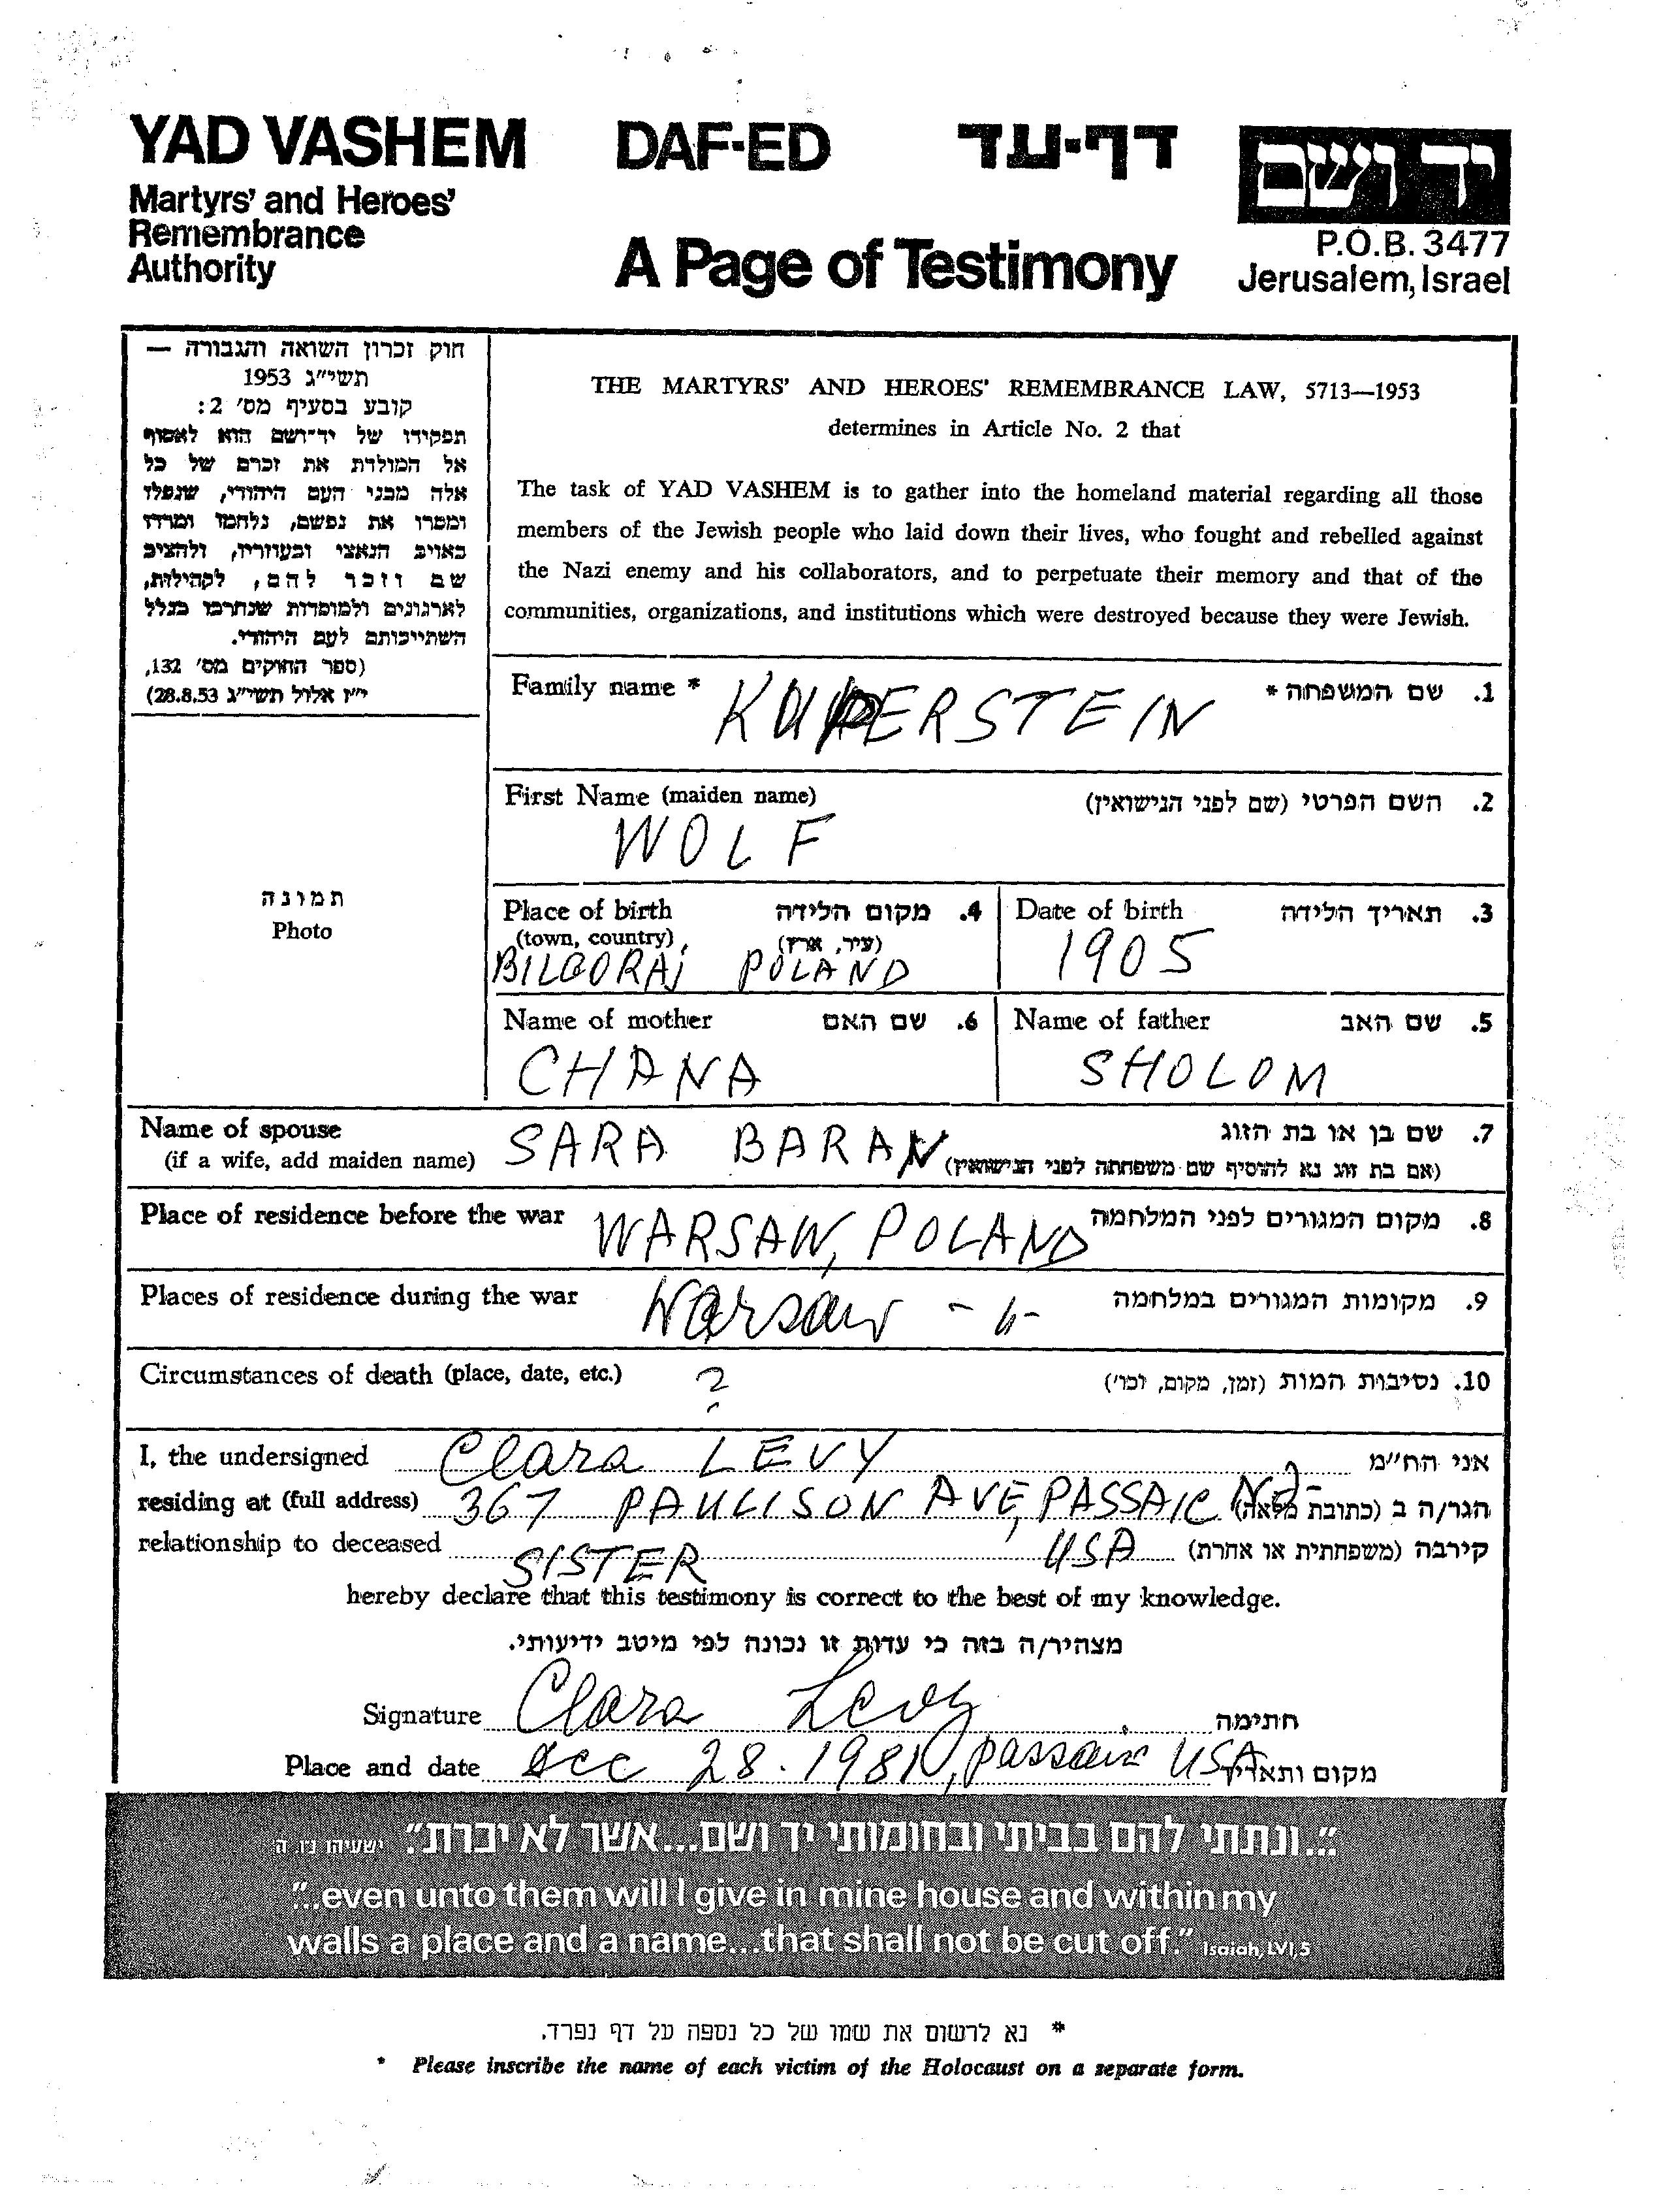 YAD VASHEM
Martyrs' and Heroes'
Remembrance
Authority
DAF-ED דף-עד
A Page of Testimony
יד ושם
P.O.B. 3477
Jerusalem, Israel
חוק זכרון השואה והגבורה —
תשי"ג 1953
קובע בסעיף מס' 2:
תפקידו של יד־ושם הוא לאסוף
אל המולדת את זכרם של כל
אלה מבני העם היהודי, שנפלו
ומסרו את נפשם, נלחמו ומרדו
באויב הנאצי ובעוזריו, ולהציב
שם וזכר להם, לקהילות,
לארגונים ולמוסדות שנחרבו בגלל
השתייכותם לעם היהודי.
(ספר החוקים מס' 132,
י"ז אלול תשי"ג 28.8.53)
THE MARTYRS' AND HEROES' REMEMBRANCE LAW, 5713—1953
determines in Article No. 2 that
The task of YAD VASHEM is to gather into the homeland material regarding all those
members of the Jewish people who laid down their lives, who fought and rebelled against
the Nazi enemy and his collaborators, and to perpetuate their memory and that of the
communities, organizations, and institutions which were destroyed because they were Jewish.
תמונה
Photo
Family name * KUPERSTEIN 1. שם המשפחה *
First Name (maiden name) 2. השם הפרטי (שם לפני הנישואין)
WOLF
Place of birth 4. מקום הלידה
(town, country) (עיר, ארץ)
BILGORAj POLAND
Date of birth 3. תאריך הלידה
1905
Name of mother 6. שם האם
CHANA
Name of father 5. שם האב
SHOLOM
Name of spouse 7. שם בן או בת הזוג
(if a wife, add maiden name) SARA BARAN (אם בת זוג נא להוסיף שם משפחתה לפני הנישואין)
Place of residence before the war WARSAW, POLAND 8. מקום המגורים לפני המלחמה
Places of residence during the war Warsaw -"- 9. מקומות המגורים במלחמה
Circumstances of death (place, date, etc.) ? 10. נסיבות המות (זמן, מקום, וכו')
I, the undersigned Clara LEVY אני הח"מ
residing at (full address) 367 PAULISON AVE, PASSAIC NJ הגר/ה ב (כתובת מלאה)
relationship to deceased SISTER USA קירבה (משפחתית או אחרת)
hereby declare that this testimony is correct to the best of my knowledge.
מצהיר/ה בזה כי עדות זו נכונה לפי מיטב ידיעותי.
Signature Clara Levy חתימה
Place and date Dec 28. 1981, passaic USA מקום ותאריך
"...ונתתי להם בביתי ובחומותי יד ושם...אשר לא יכרת." ישעיהו נ"ו, ה
"...even unto them will I give in mine house and within my
walls a place and a name...that shall not be cut off." Isaiah, LVI, 5
* נא לרשום את שמו של כל נספה על דף נפרד.
* Please inscribe the name of each victim of the Holocaust on a separate form.